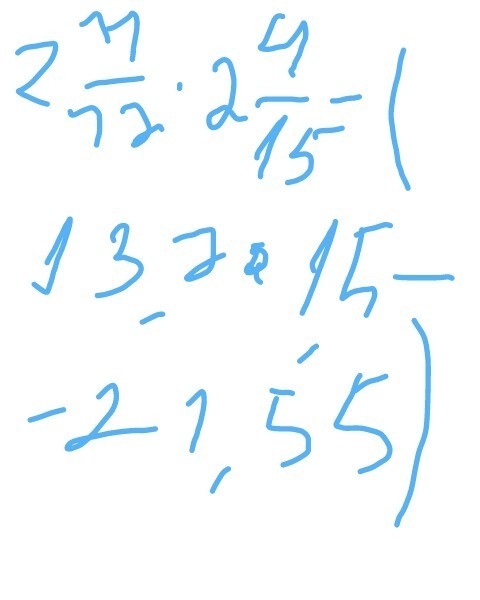 2 11/12 · 2 4/15 - (
13,2 · 1,5 -
-21,55)